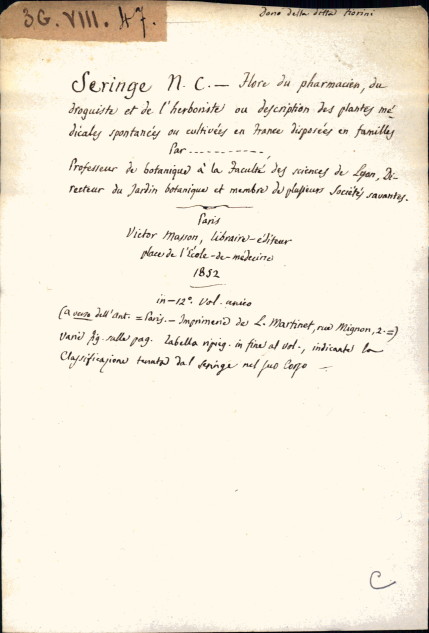 3G. VIII. 47.
dono della ditta Fiorini
Seringe N. C. — Flore du pharmacien, du
droguiste et de l'herboriste ou description des plantes mé-
dicales spontanées ou cultivées en France disposées en familles
Par ----------
Professeur de botanique à la Faculté des sciences de Lyon, Di-
recteur du Jardin botanique et membre de plusieurs Sociétés savantes.
Paris
Victor Masson, libraire-éditeur
place de l'École-de-médecine
1852
in-12º. Vol. unico
(a verso dell'ant. = Paris. — Imprimerie de L. Martinet, rue Mignon, 2. =)
varie fig. sulle pag. Tabella ripieg. in fine al vol., indicante la
Classificazione tenuta dal Seringe nel suo Corso —
C